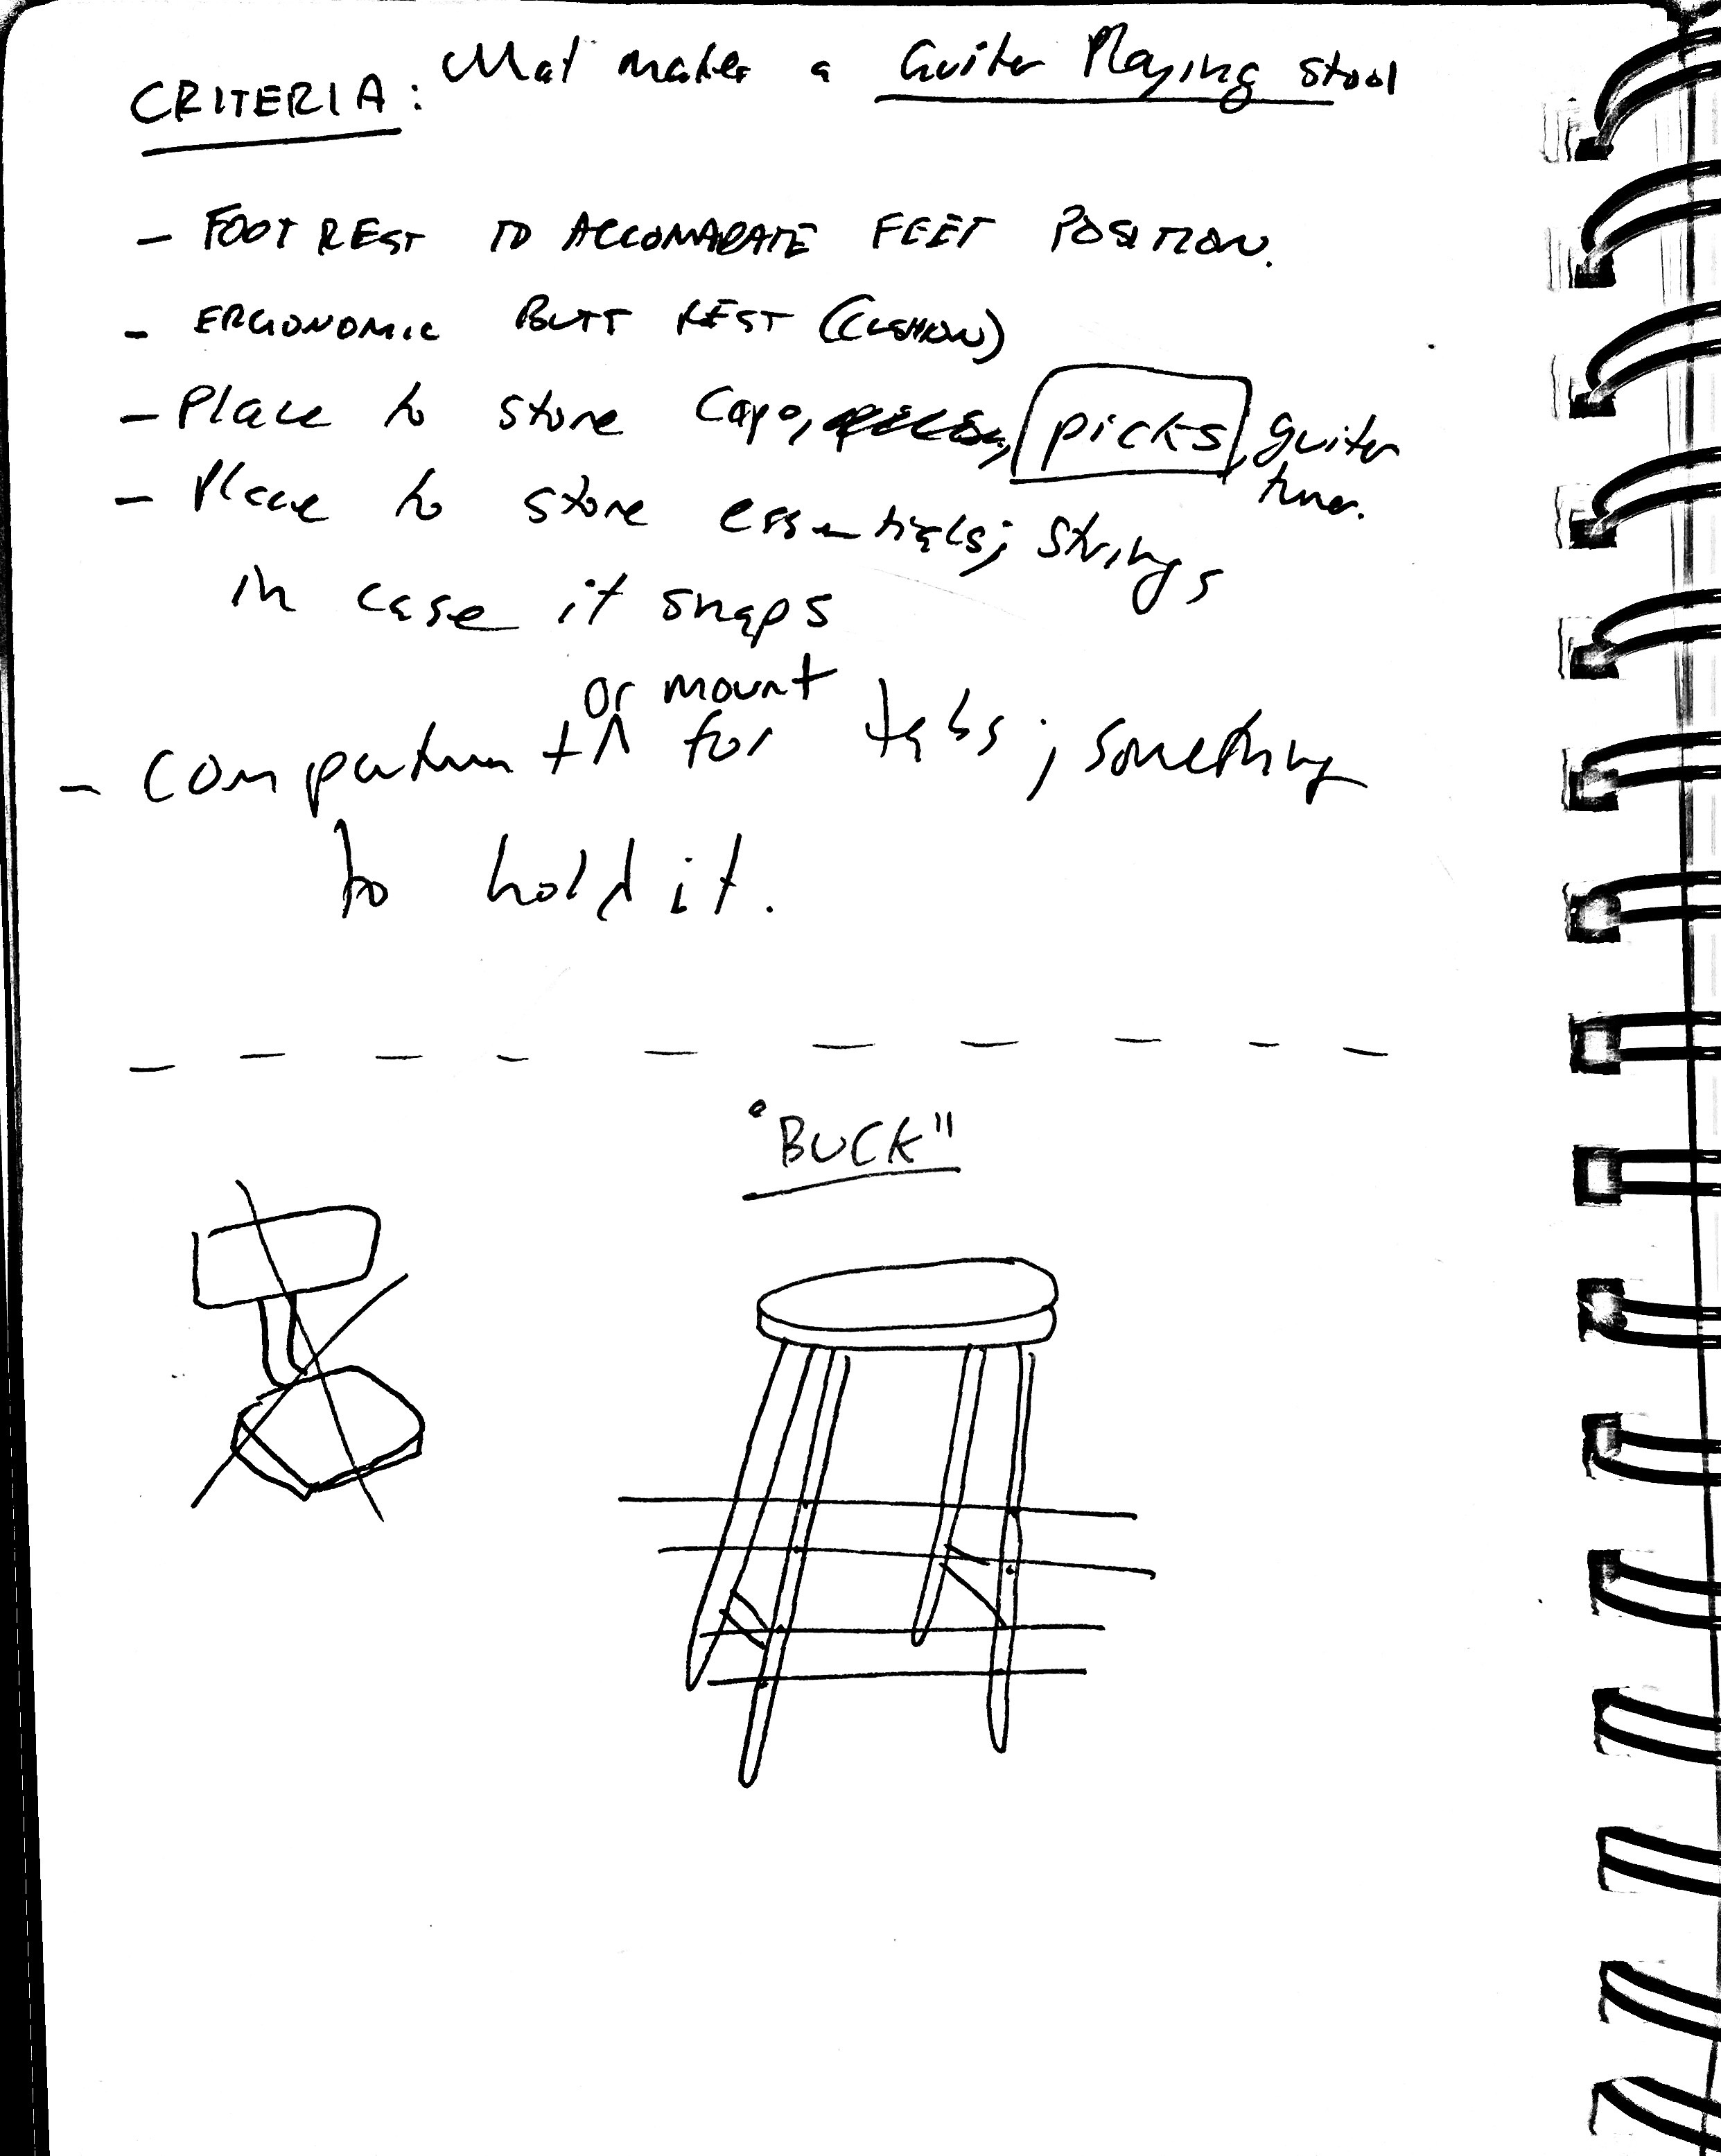 CRITERIA: What makes a Guitar Playing stool
- FOOT REST TO ACCOMADATE FEET POSITION.
- ERGONOMIC BUTT REST (CUSHION)
- Place to store Capo, picks, guitar
tuner.
- Place to store essentials; strings
in case it snaps
or mount
- Compartment ^ for tabs; something
to hold it.
"BUCK"